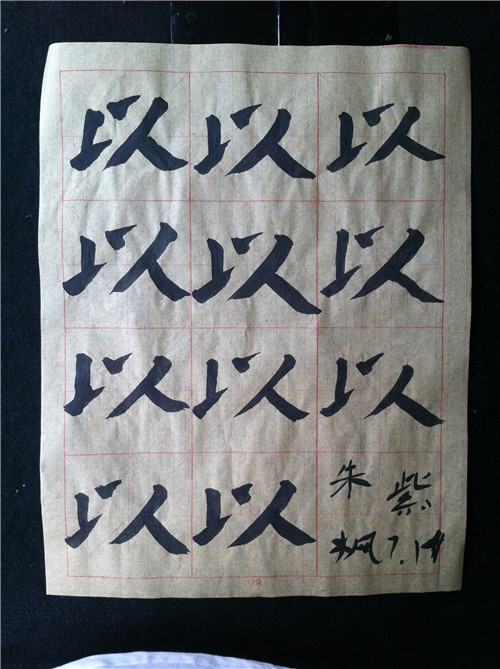 以以以
以以以
以以以
以以
朱紫
枫7.14